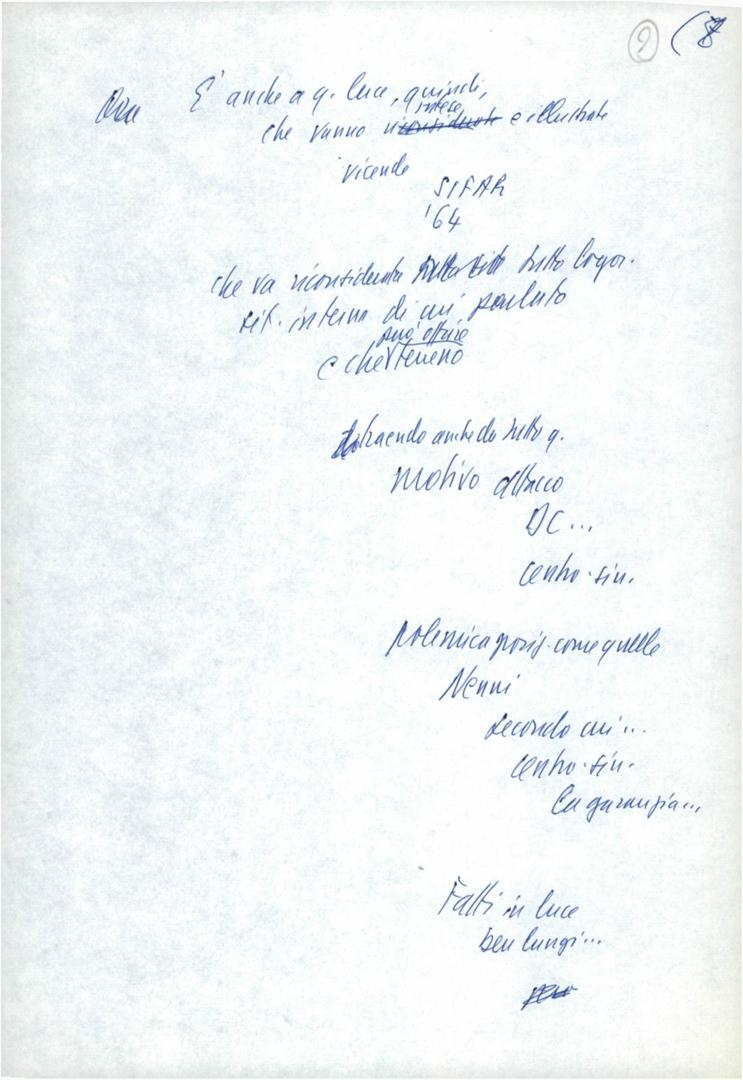 9 (8
Ora È anche a q. luce, quindi,
intese
che vanno riconsiderate e illustrate
vicende
SIFAR
'64
che va riconsiderata tutto
sit. interna di cui parlato
può offrire
e che terreno
traendo anche da tutto q.
motivo attacco
DC...
centro-sin.
polemica posiz. come quelle
Nenni
secondo cui...
centro-sin.
garanzia...
Fatti in luce
ben lungi...